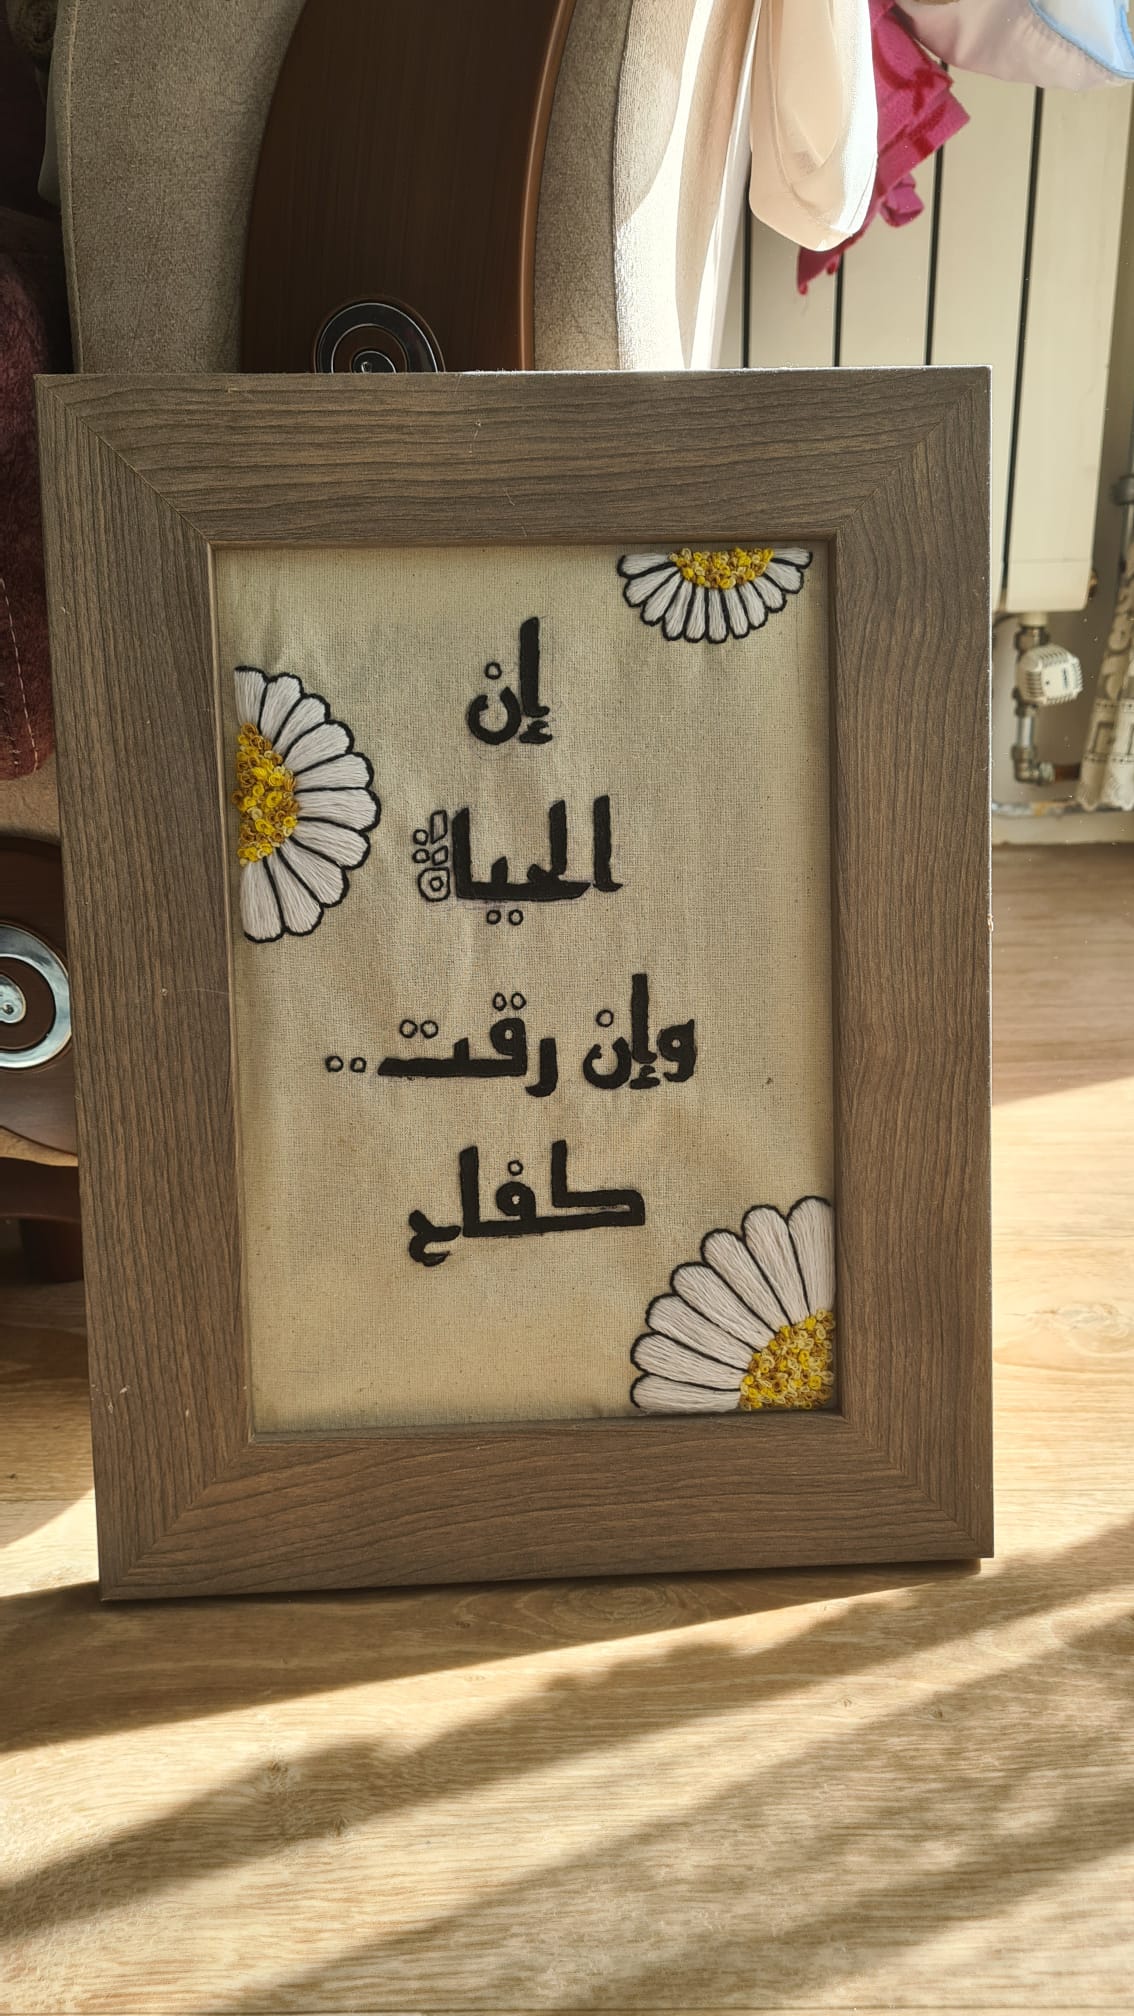 إن
الحياة
وإن رقت..
كفاح